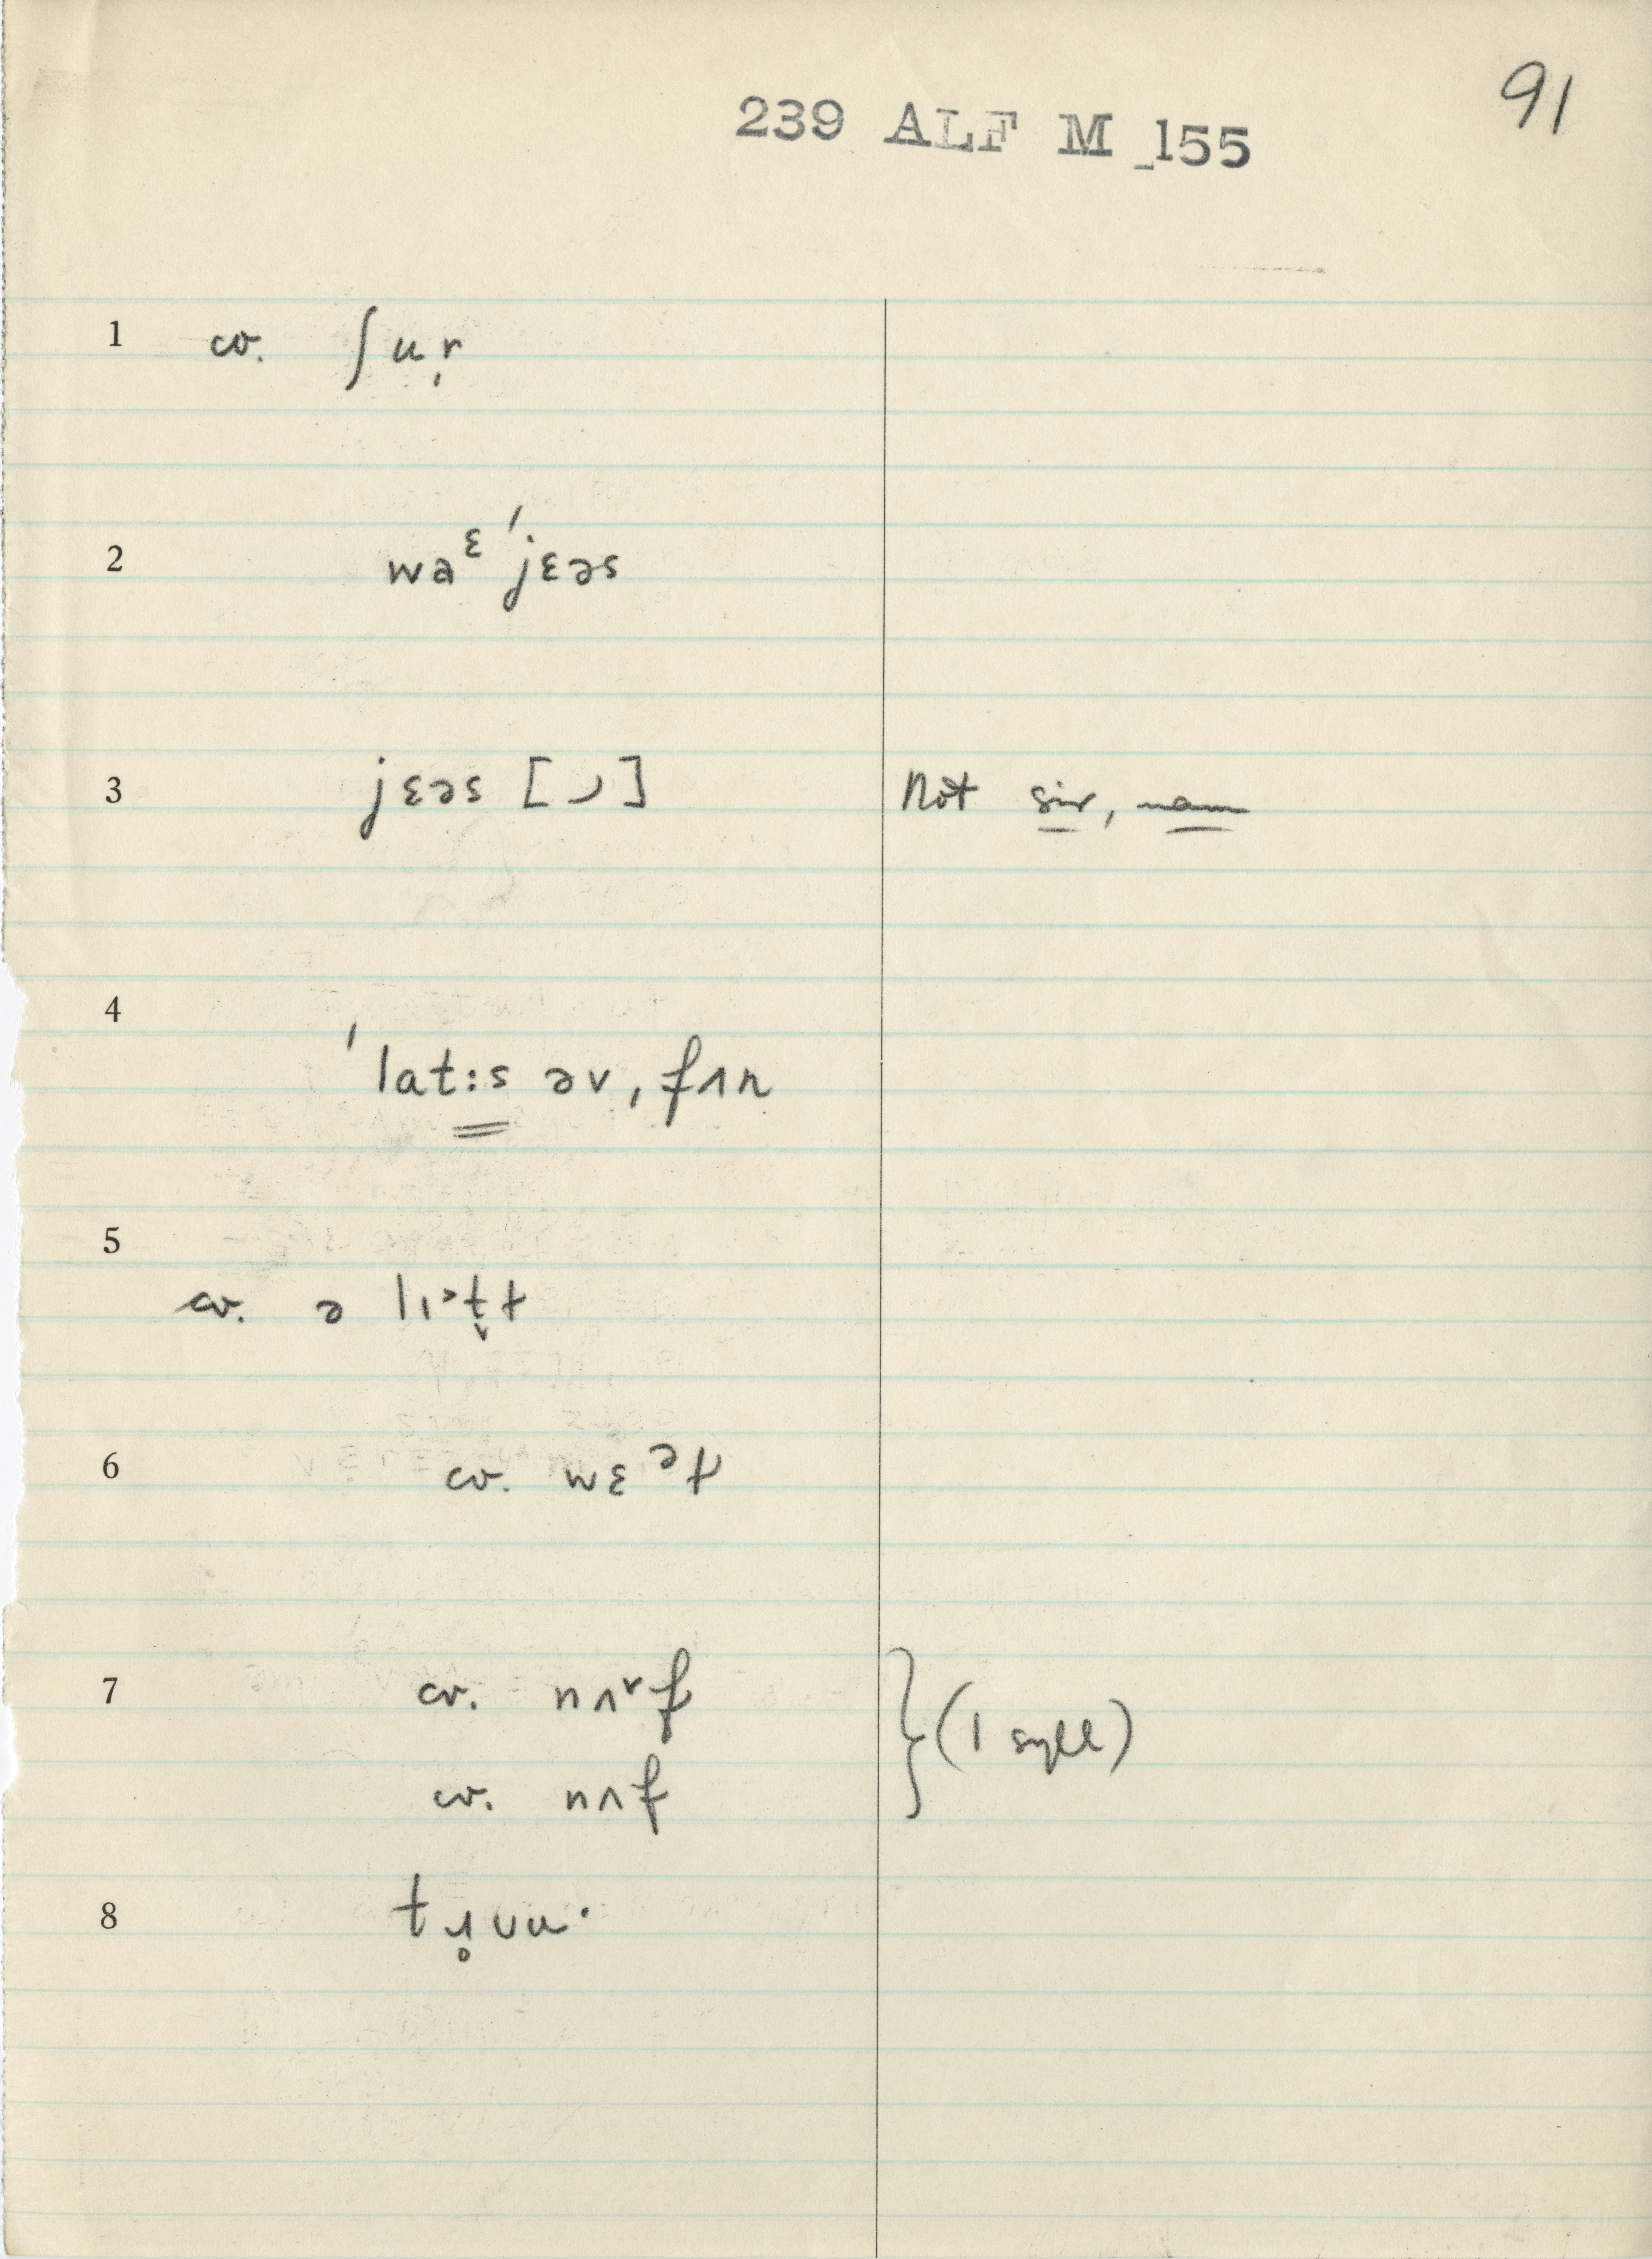 91
239 ALF M 155
1 cv. ʃu̩r
2 waᵋ ˈjɛəs
3 jɛəs [ ] Not sir, mam
4 ˈlat:s əv, fʌn
5 cv. ə lɪ>t̬ɫ
6 cv. wɛᵊɫ
7 cv. nʌʳf } (1 syll)
cv. nʌf
8 tɹ̥ʊu·